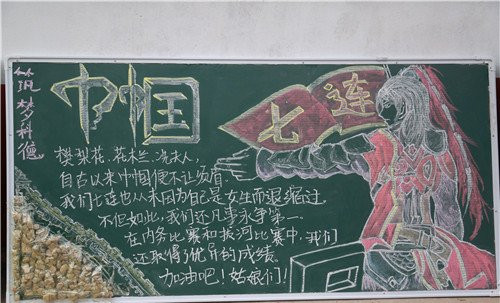 筑梦科德
巾帼
七连
樊梨花、花木兰、冼夫人，
自古以来巾帼便不让须眉。
我们七连也从未因为自己是女生而退缩过，
不但如此，我们还凡事永争第一。
在内务比赛和拔河比赛中，我们
还取得了优异的成绩。
加油吧！姑娘们！